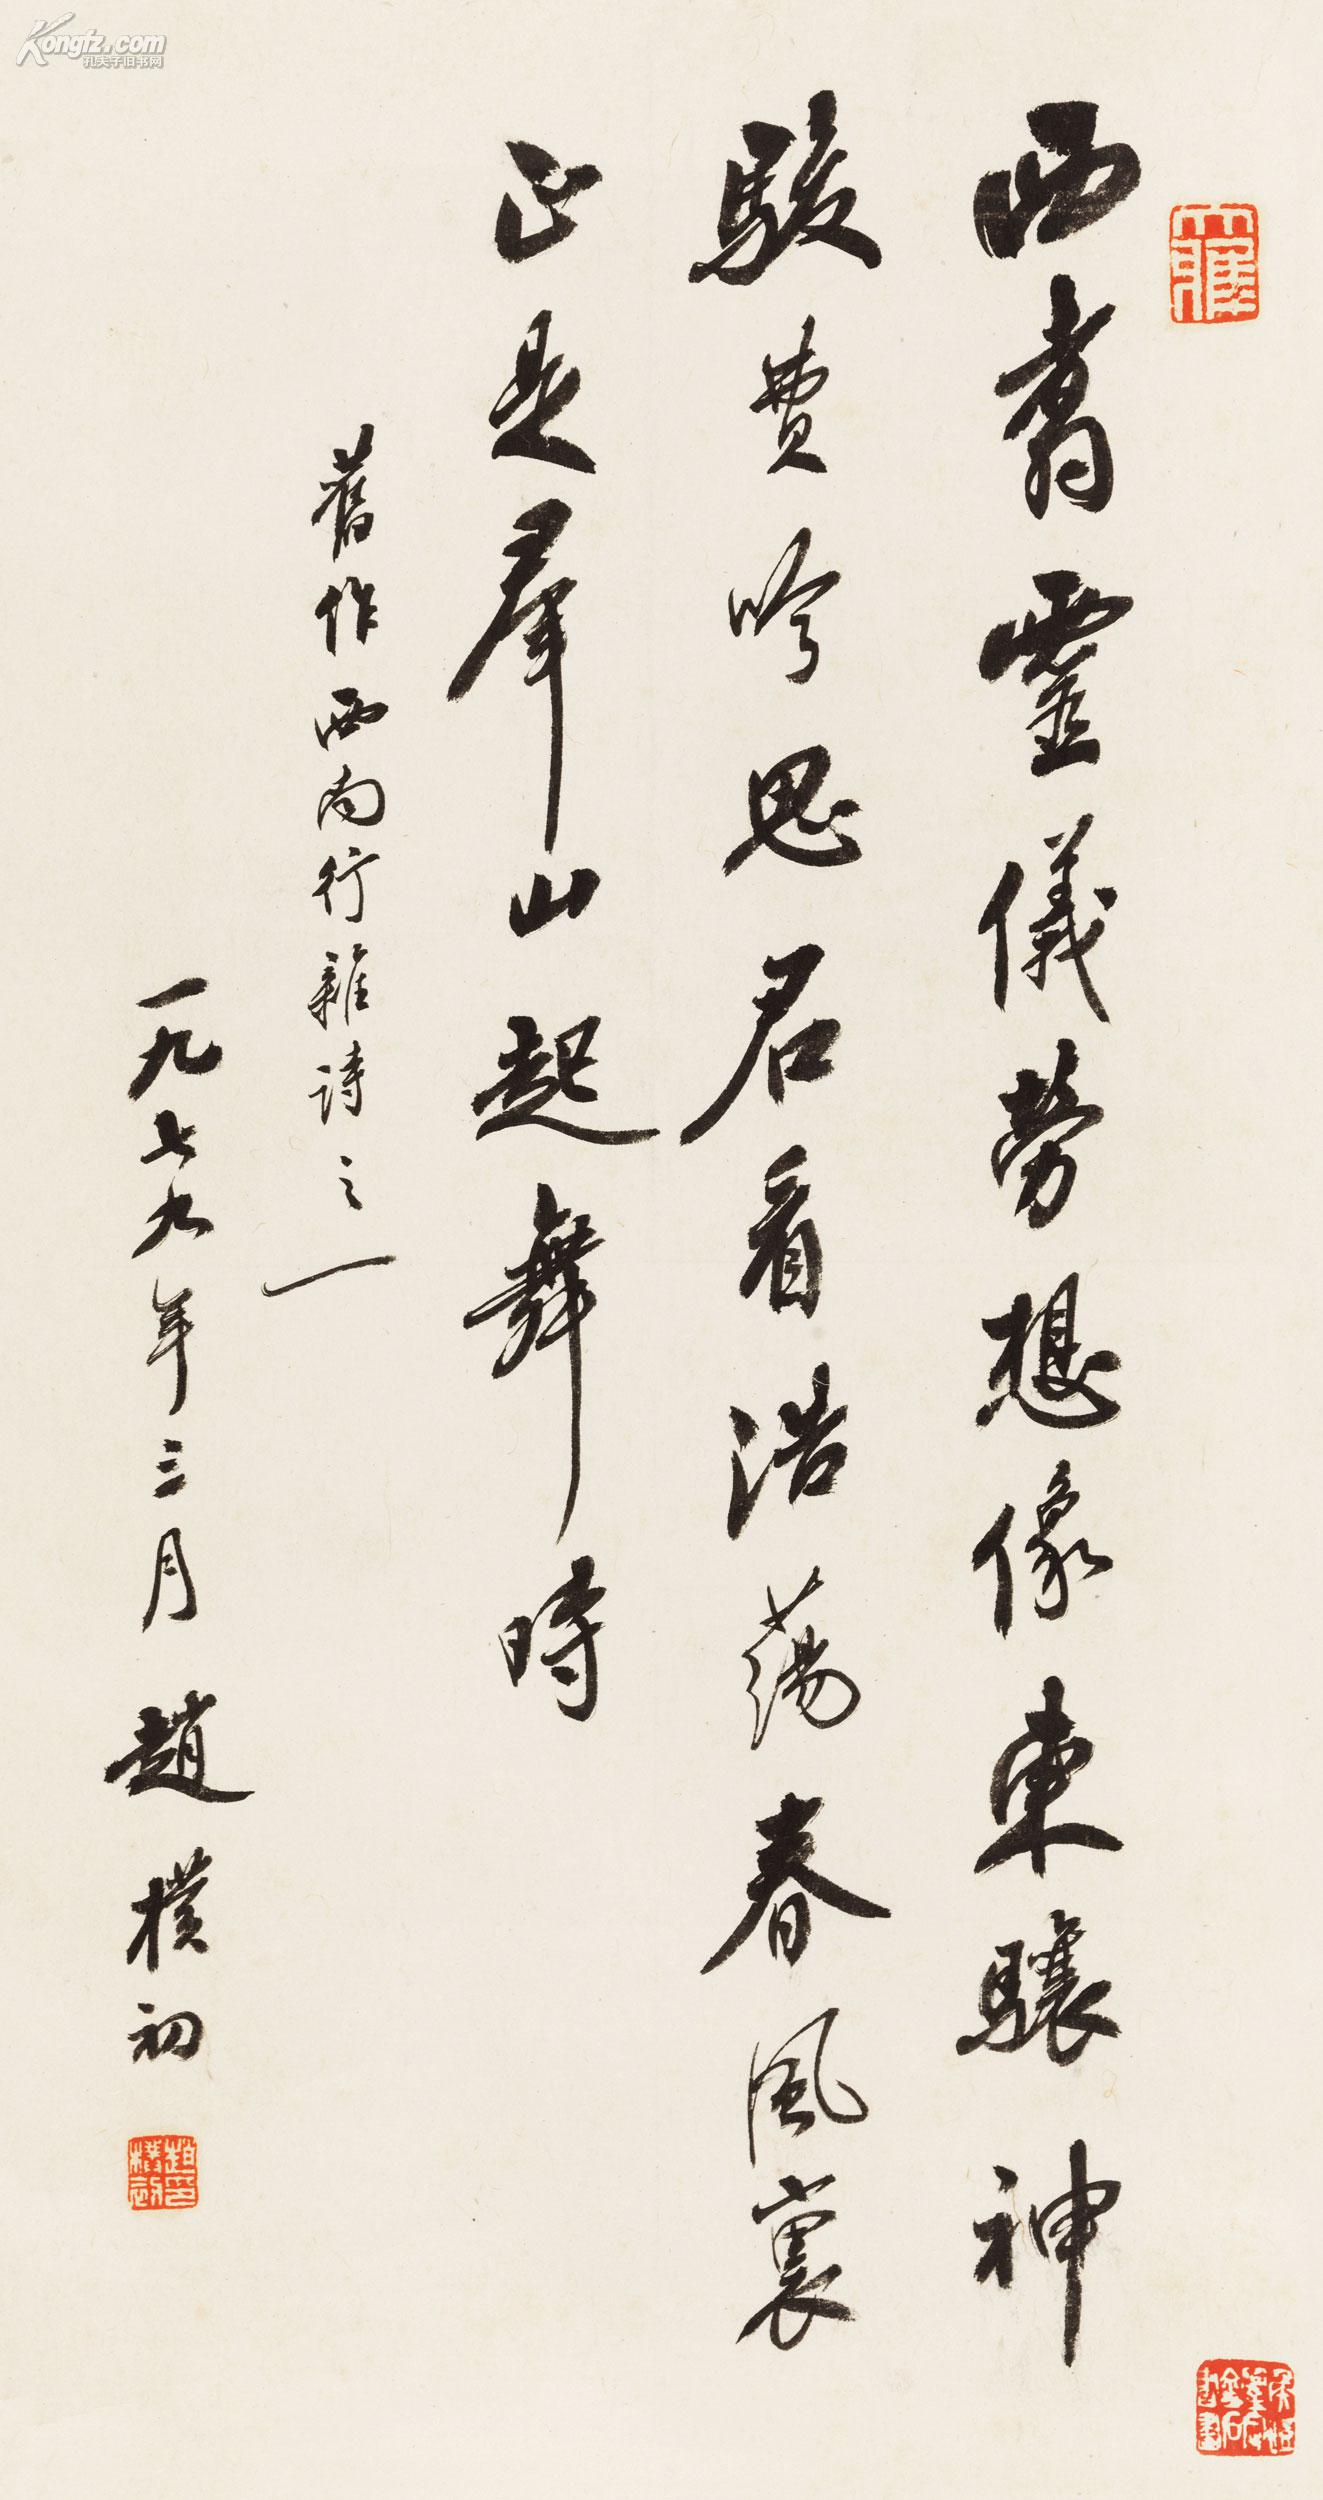 西翥靈儀勞想像東驤神
駿費吟思君看浩蕩春風裏
正是群山起舞時
舊作西南行雜詩之一
一九七九年三月趙樸初
趙樸初印
Kongfz.com
孔夫子旧书网